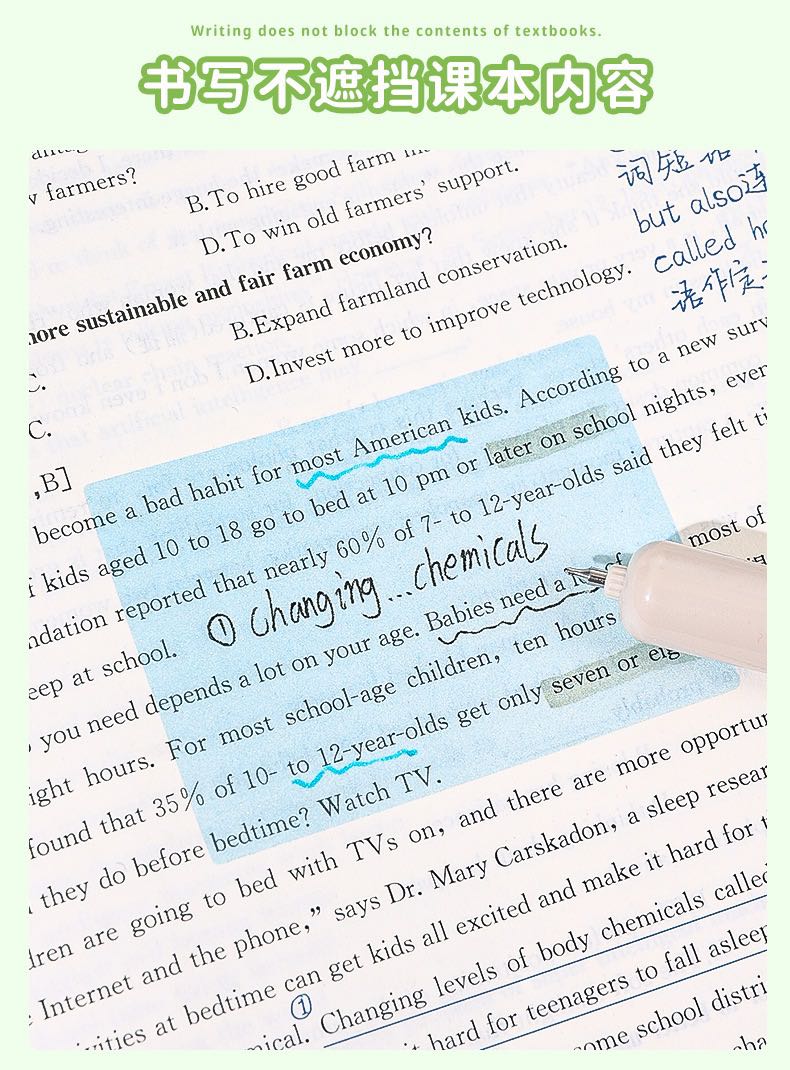 Writing does not block the contents of textbooks.
书写不遮挡课本内容
w farmers?
B.To hire good farm
D.To win old farmers' support.
more sustainable and fair farm economy?
B.Expand farmland conservation.
D.Invest more to improve technology.
C.
C.
,B]
but also连
called
语作定
become a bad habit for most American kids. According to a new surv
f kids aged 10 to 18 go to bed at 10 pm or later on school nights, even
ndation reported that nearly 60% of 7- to 12-year-olds said they felt ti
eep at school.
① changing...chemicals
you need depends a lot on your age. Babies need a lot of most of
ight hours. For most school-age children, ten hours
found that 35% of 10- to 12-year-olds get only seven or eig
they do before bedtime? Watch TV.
dren are going to bed with TVs on, and there are more opportun
Internet and the phone,” says Dr. Mary Carskadon, a sleep resear
vities at bedtime can get kids all excited and make it hard for t
① mical. Changing levels of body chemicals called
t hard for teenagers to fall asleep
ome school distri